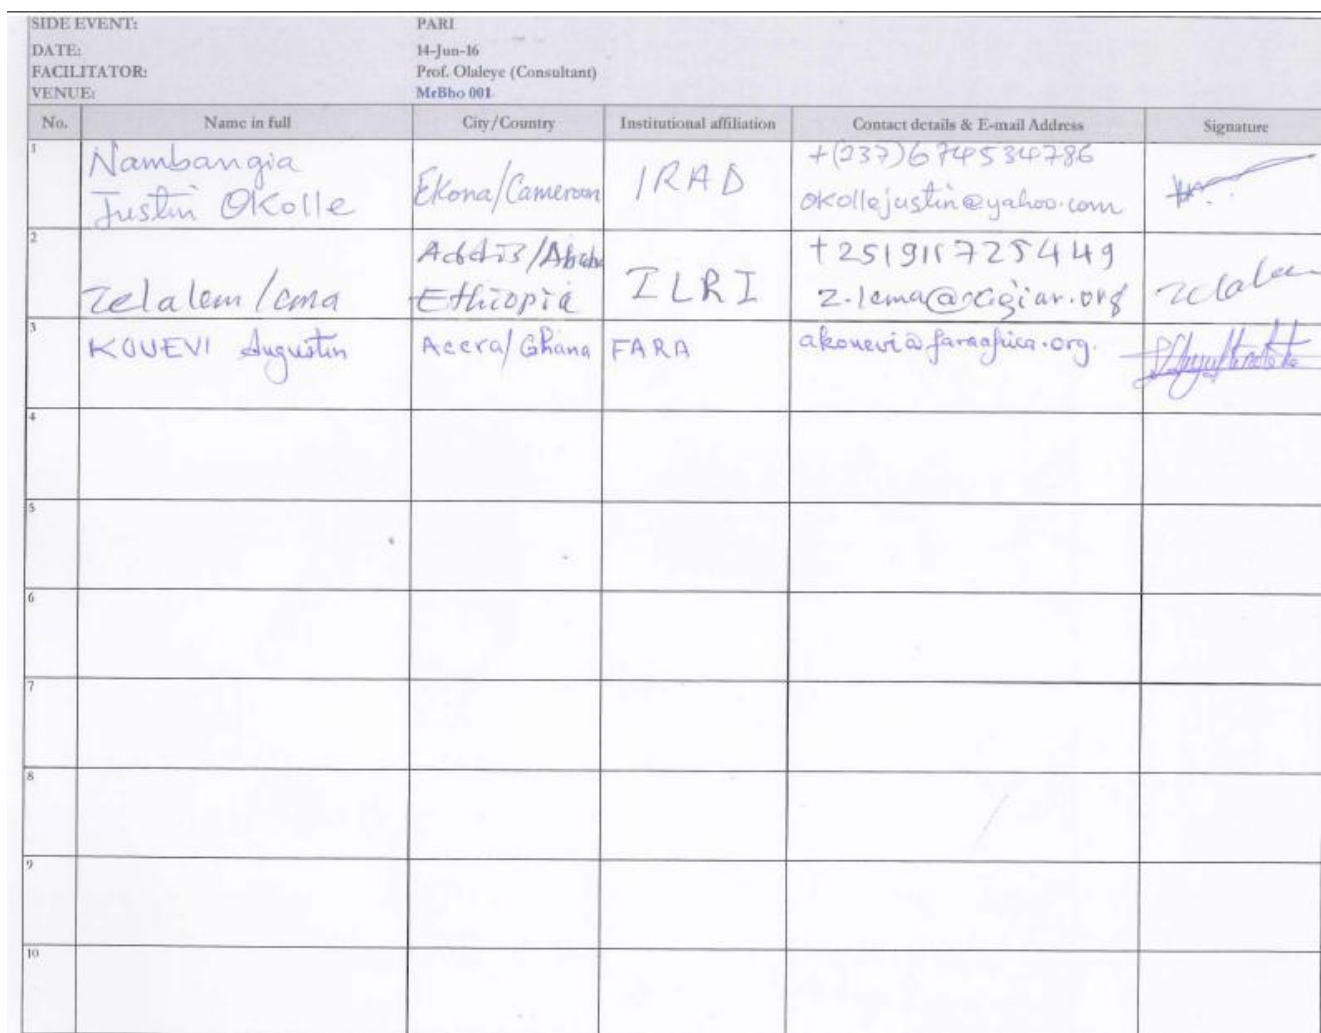 SIDE EVENT: PARI
DATE: 14-Jun-16
FACILITATOR: Prof. Olaleye (Consultant)
VENUE: MrBho 001
No. Name in full City/Country Institutional affiliation Contact details & E-mail Address Signature
1 Nambangia Justin Okolle Ekona/Cameroon IRAD +(237)674534786
okollejustin@yahoo.com
2 Zelalem Lema Addis/Ababa
Ethiopia ILRI +251911725449
z.lema@cgiar.org Zelalem
3 KOUEVI Augustin Accra/Ghana FARA akouevi@faraafrica.org.
4
5
6
7
8
9
10